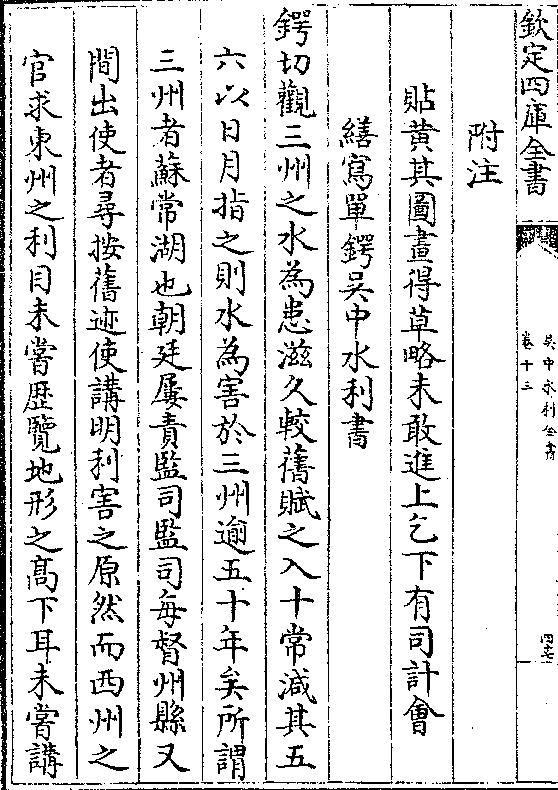 欽定四庫全書
吳中水利全書
卷十三
附注
貼黄其圖畫得草略未敢進上乞下有司計會
繕寫單鍔吳中水利書
鍔切觀三州之水為患滋久較舊賦之入十常減其五
六以日月指之則水為害於三州逾五十年矣所謂
三州者蘇常湖也朝廷屢責監司監司每督州縣又
間出使者尋按舊迹使講明利害之原然而西州之
官求東州之利目未嘗歴覽地形之髙下耳未嘗講